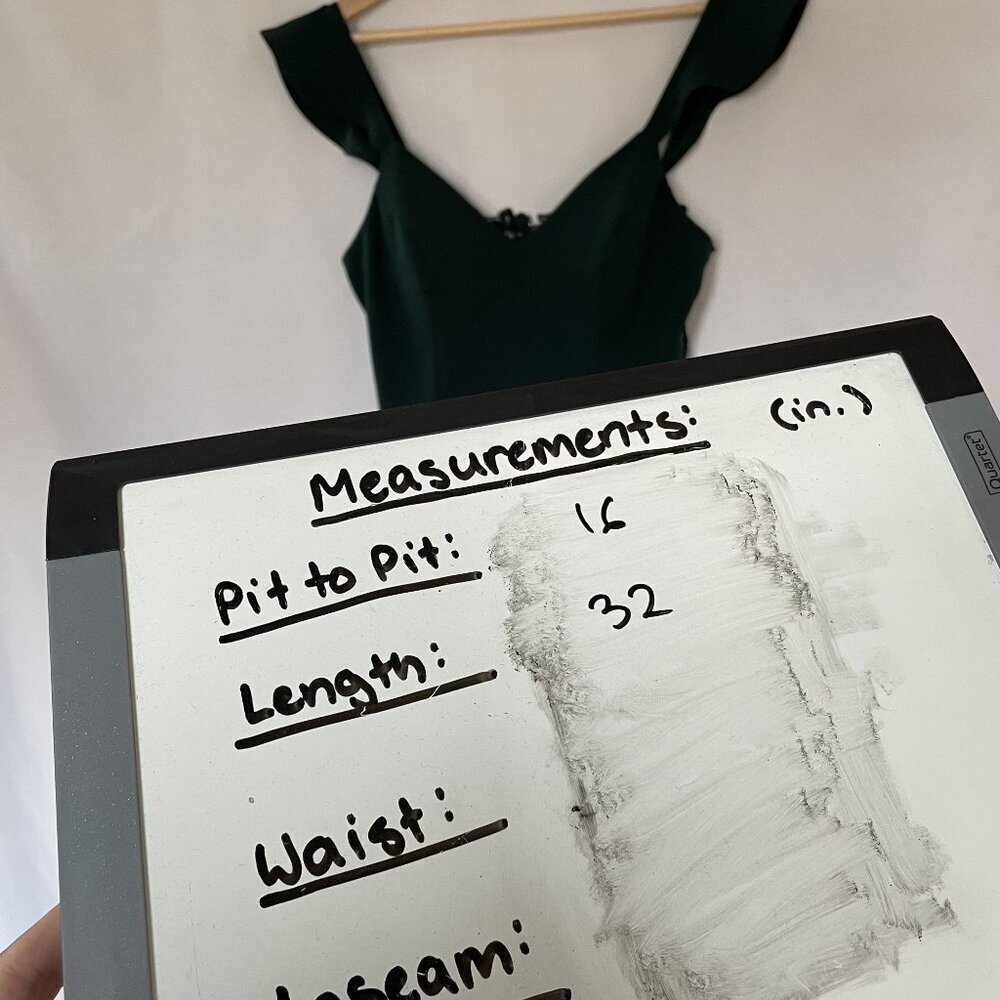 Measurements: (in.)
Pit to Pit: 16
Length: 32
Waist:
Inseam:
Quartet